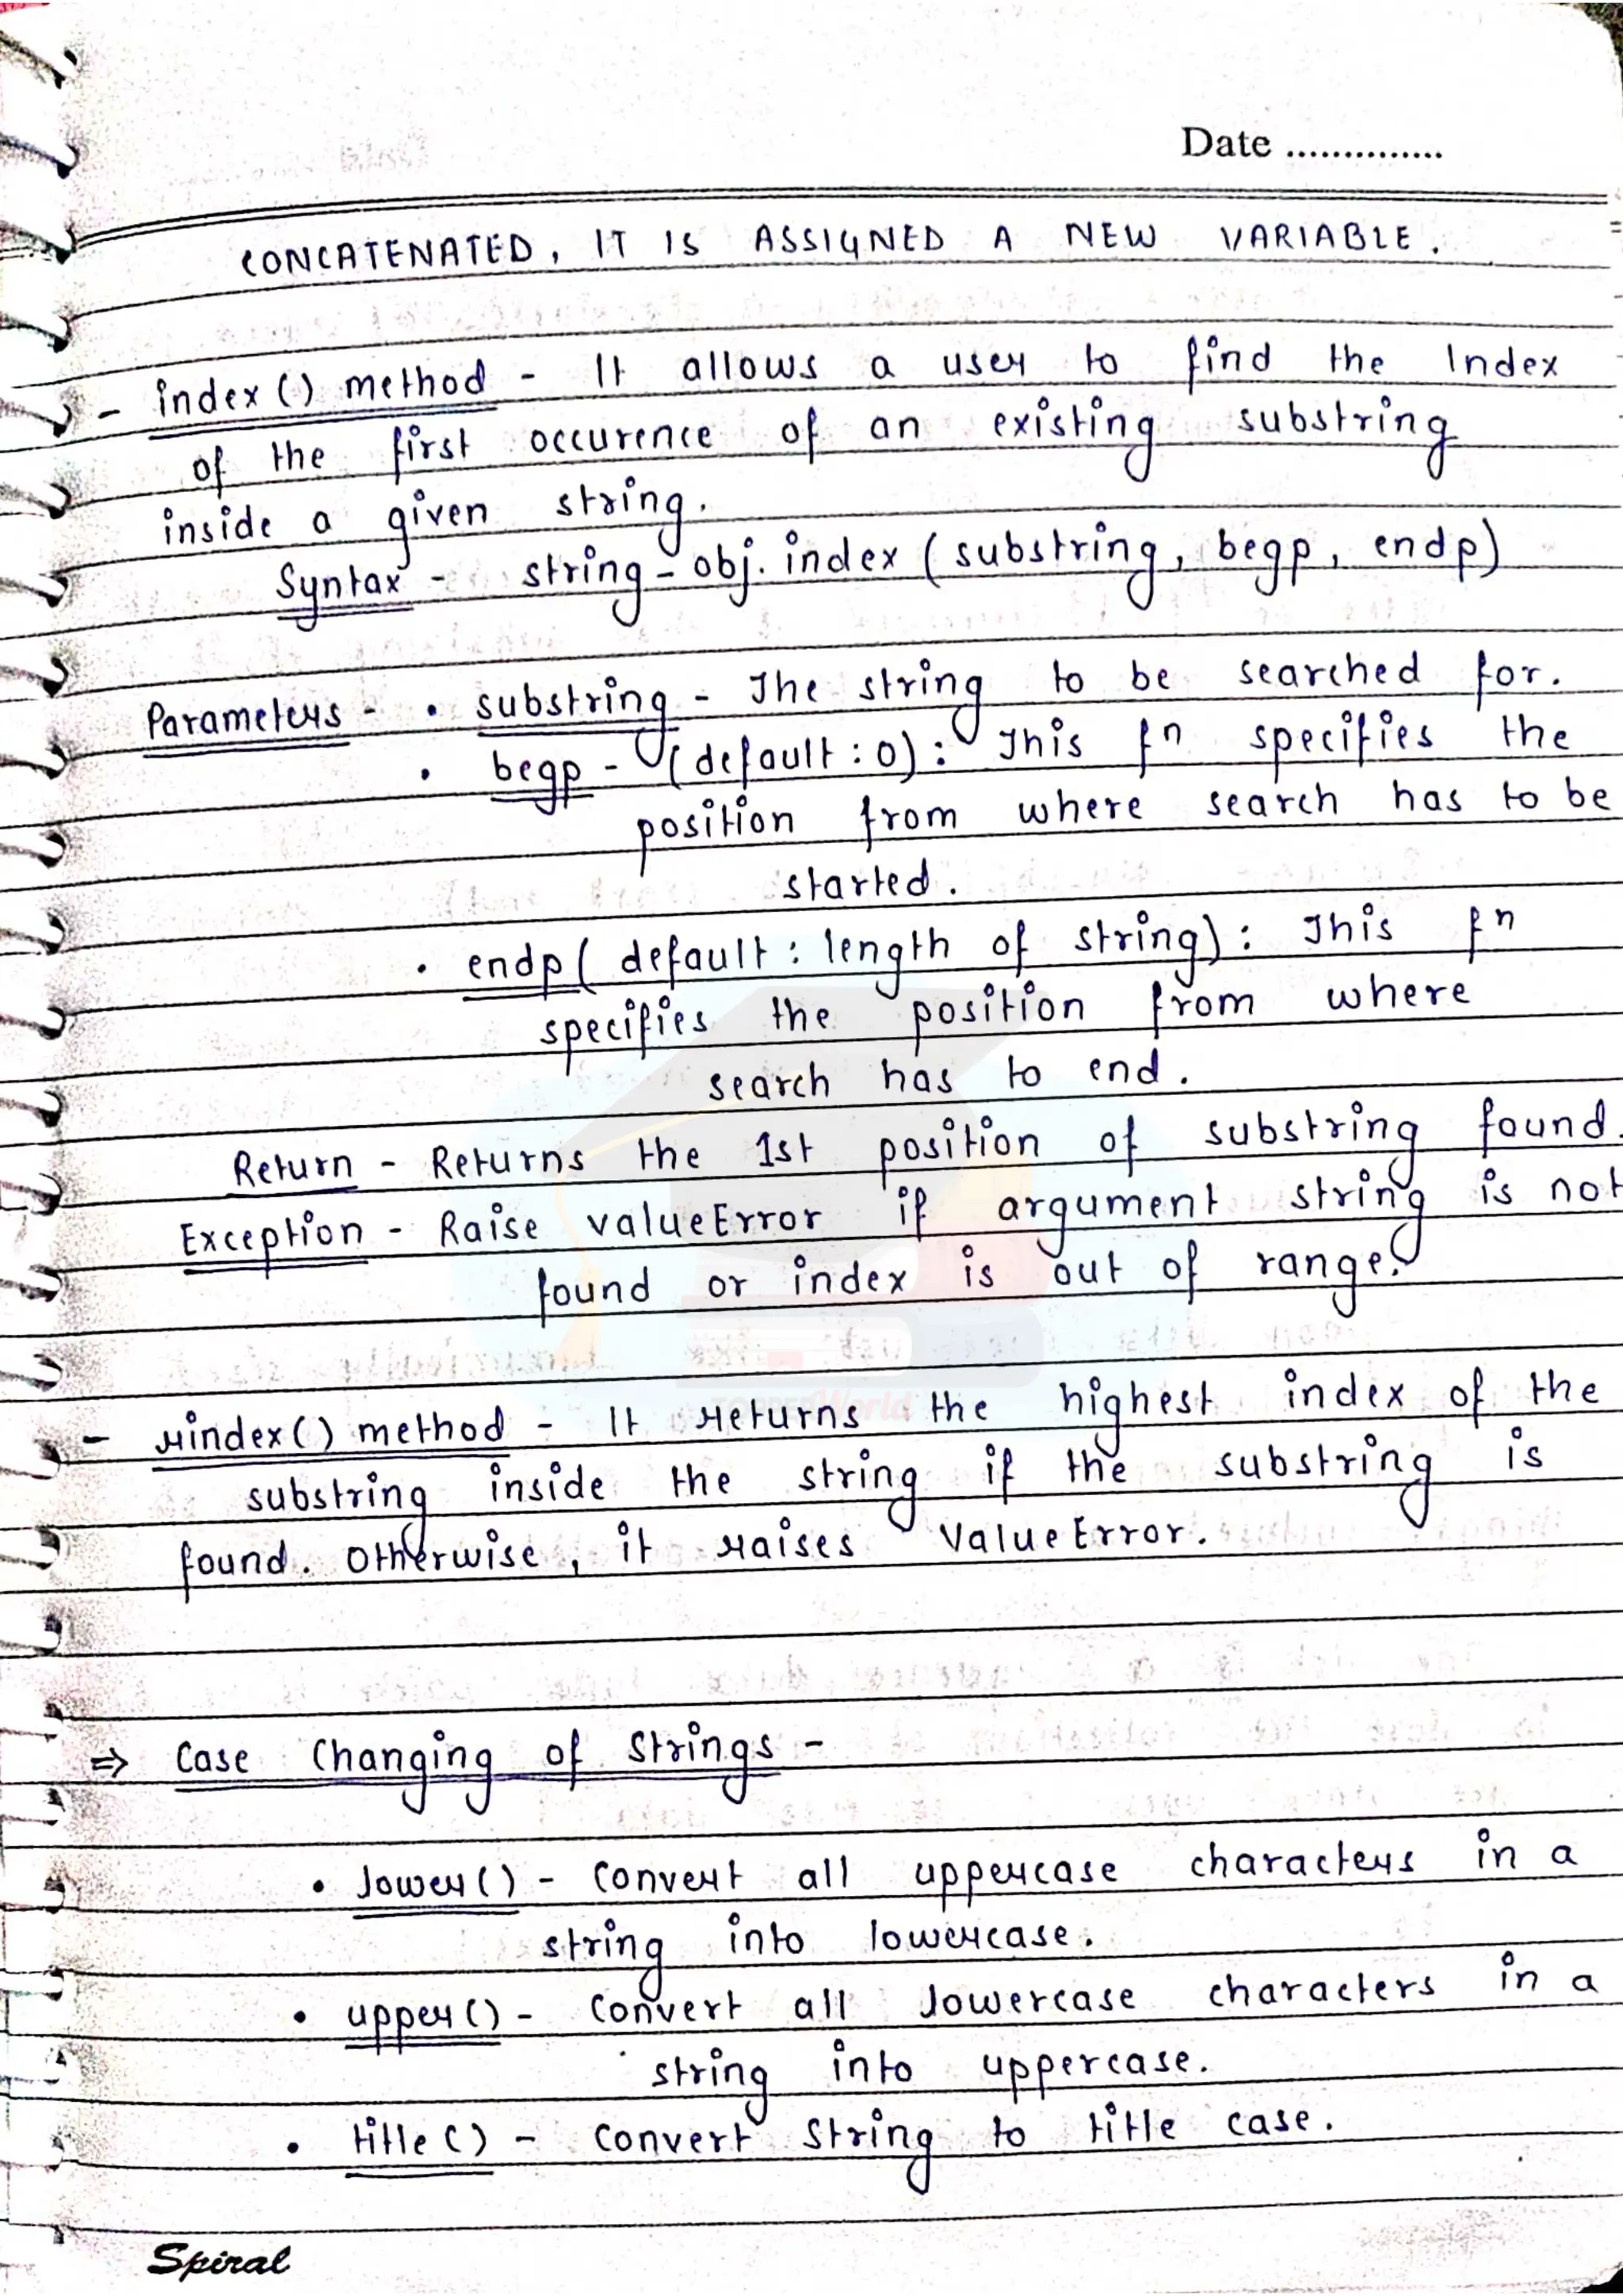 Date ..............
CONCATENATED, IT IS ASSIGNED A NEW VARIABLE.
- index() method - It allows a user to find the Index
of the first occurence of an existing substring
inside a given string.
Syntax - string-obj.index (substring, begp, endp)
Parameters - • substring - The string to be searched for.
• begp - (default : 0) : This fn specifies the
position from where search has to be
started.
• endp( default : length of string) : This fn
specifies the position from where
search has to end.
Return - Returns the 1st position of substring found.
Exception - Raise valueError if argument string is not
found or index is out of range.
TOPPERWorld
- rindex() method - It returns the highest index of the
substring inside the string if the substring is
found. Otherwise, it raises ValueError.
⇒ Case Changing of Strings -
• lower() - Convert all uppercase characters in a
string into lowercase.
• upper() - Convert all lowercase characters in a
string into uppercase.
• title() - Convert String to title case.
Spiral